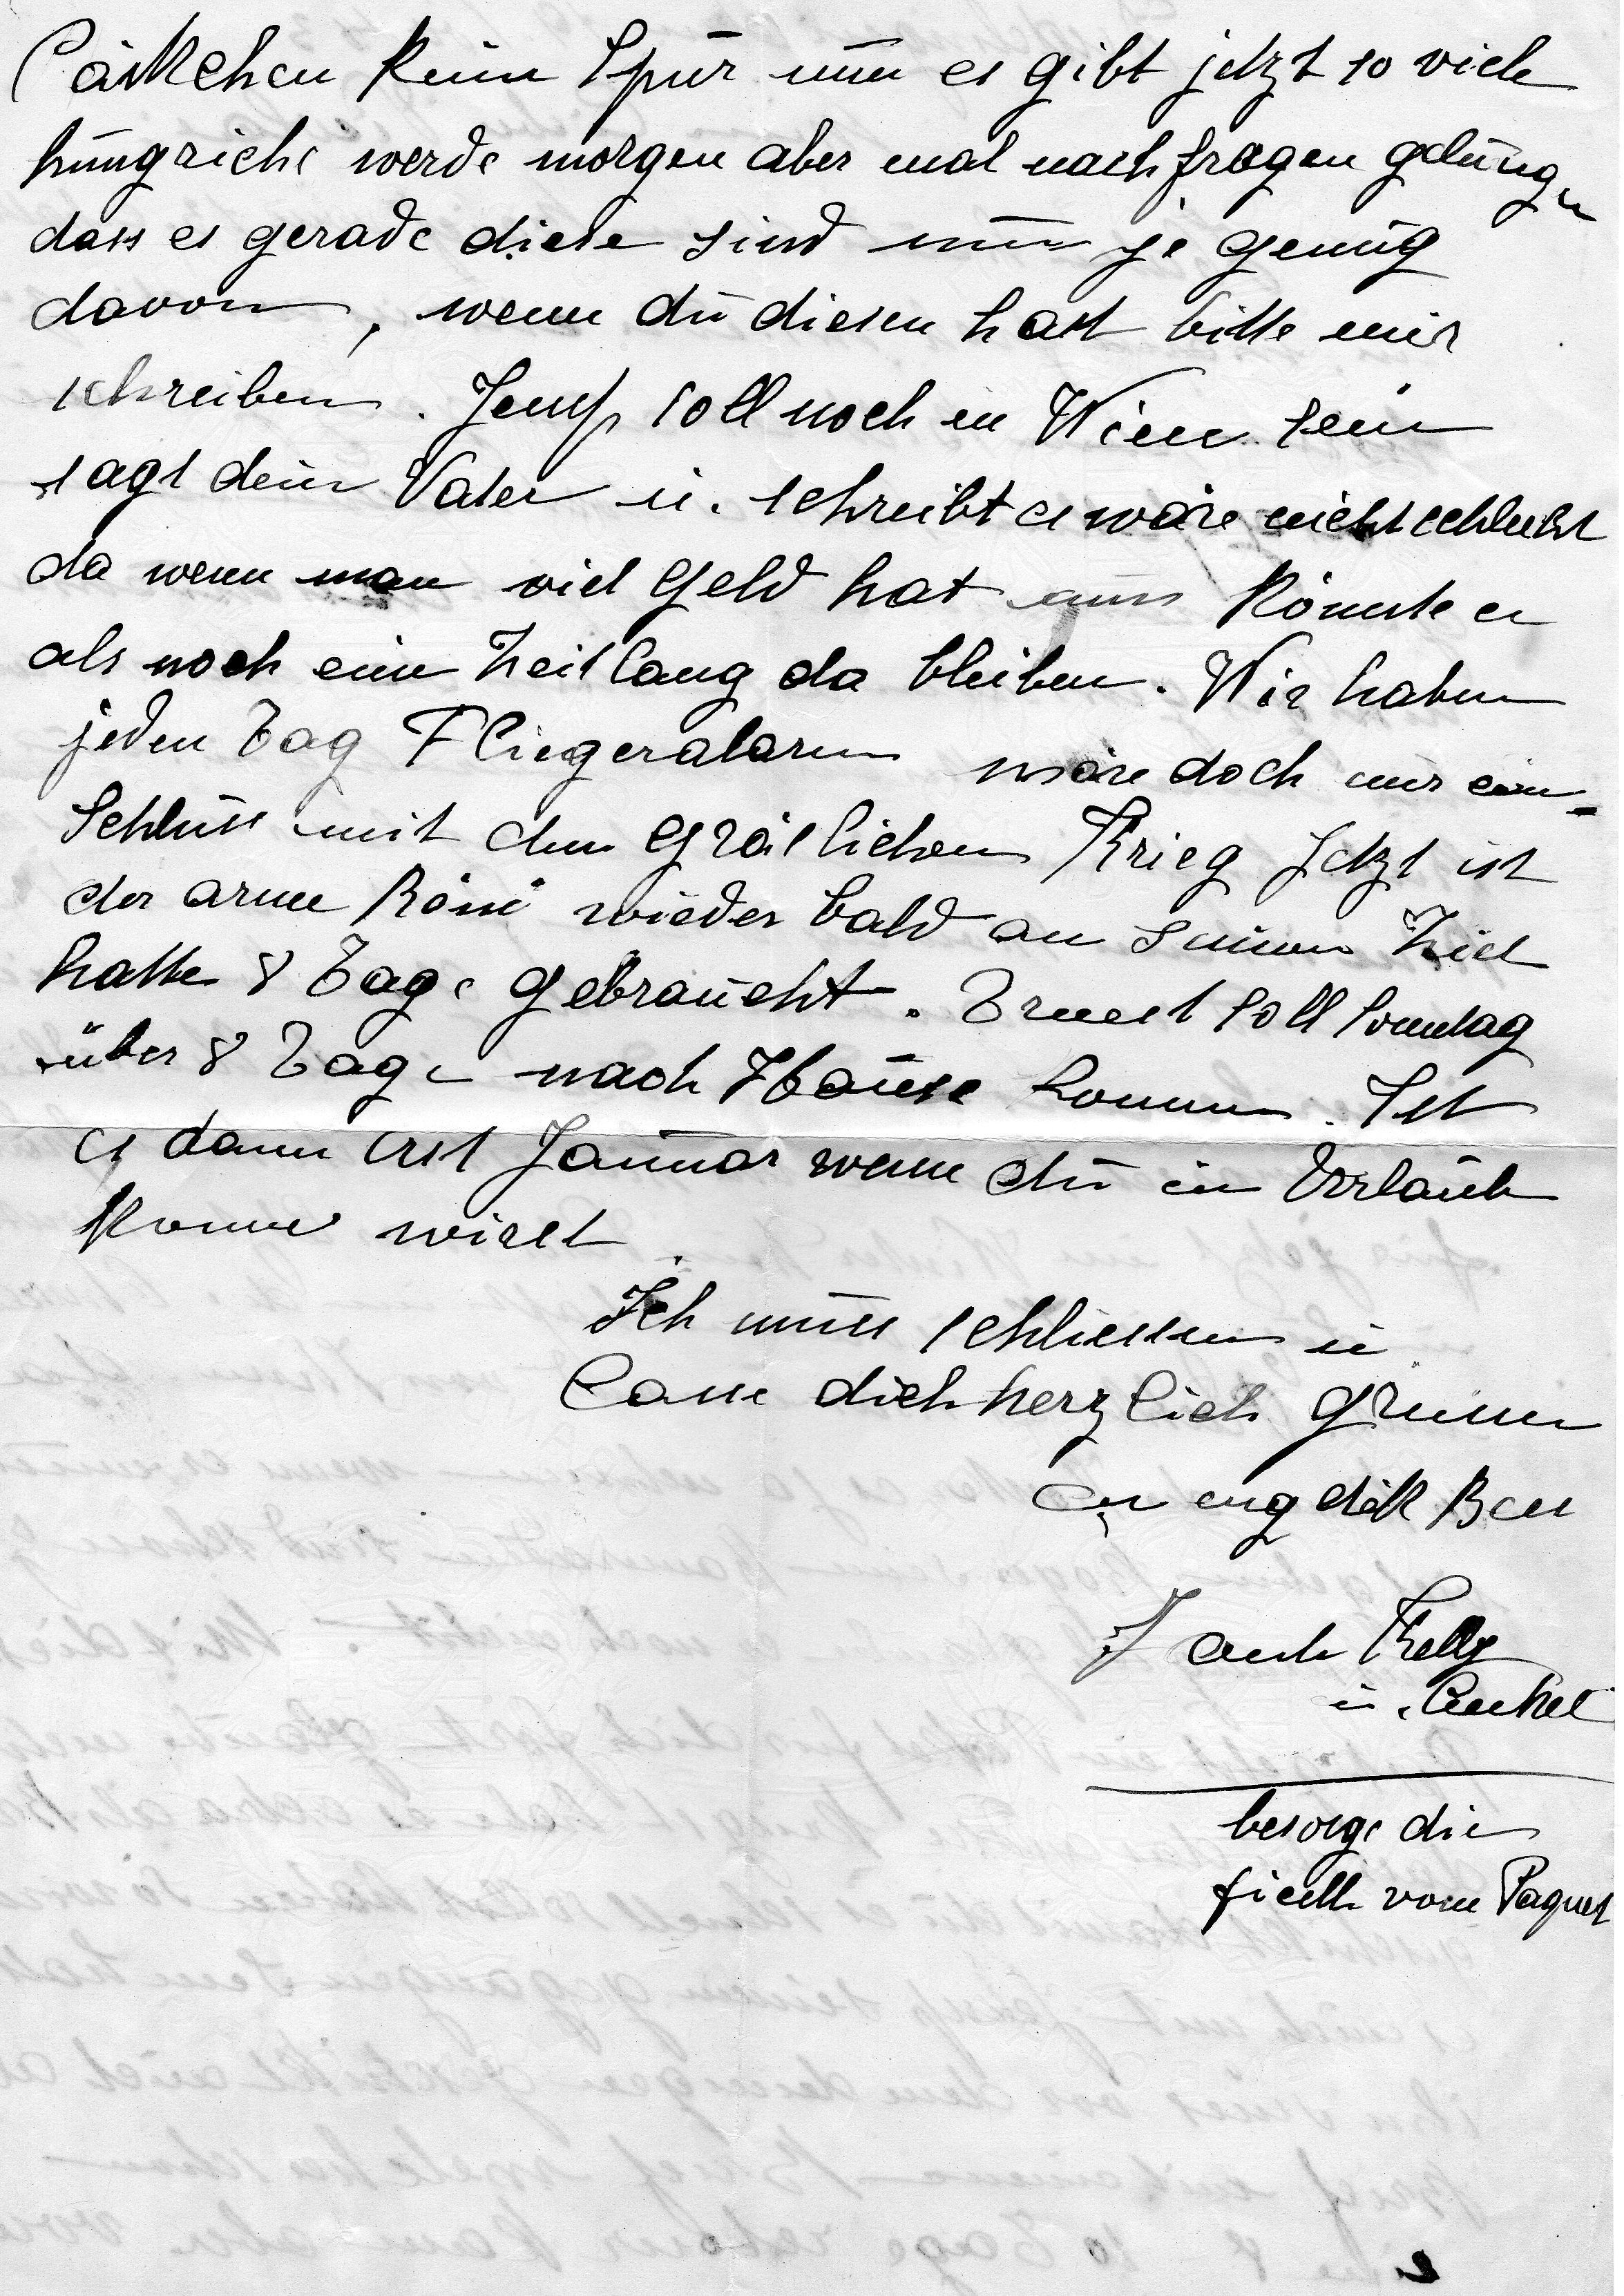 Päckchen kein Spur nun es gibt jetzt so viele
hungriche werde morgen aber mal nachfragen
dass es gerade diese sind nun je genug
davon, wenn du diesen hast bitte mir
schreiben. Jemp soll noch in Wien sein
sagt dein Vater u. schreibt es wäre nicht schlecht
da wenn man viel Geld hat nun könnte er
als noch eine Zeitlang da bleiben. Wir haben
jeden Tag Fliegeralarm wäre doch nur ein
Schluss mit dem gräslichen Krieg Jetzt ist
der arme Réné wieder bald an seinem Ziel
hatte 8 Tage gebraucht. Ernest soll Sonntag
über 8 Tage nach Hause kommen. Ist
es dann erst Januar wenn du in Urlaub
komme wirst.
Ich muss schliessen u
lasse dich herzlich grüssen
an eng déck Bees
Tante Ketty
u.
besorge die
ficelle vom Paquet